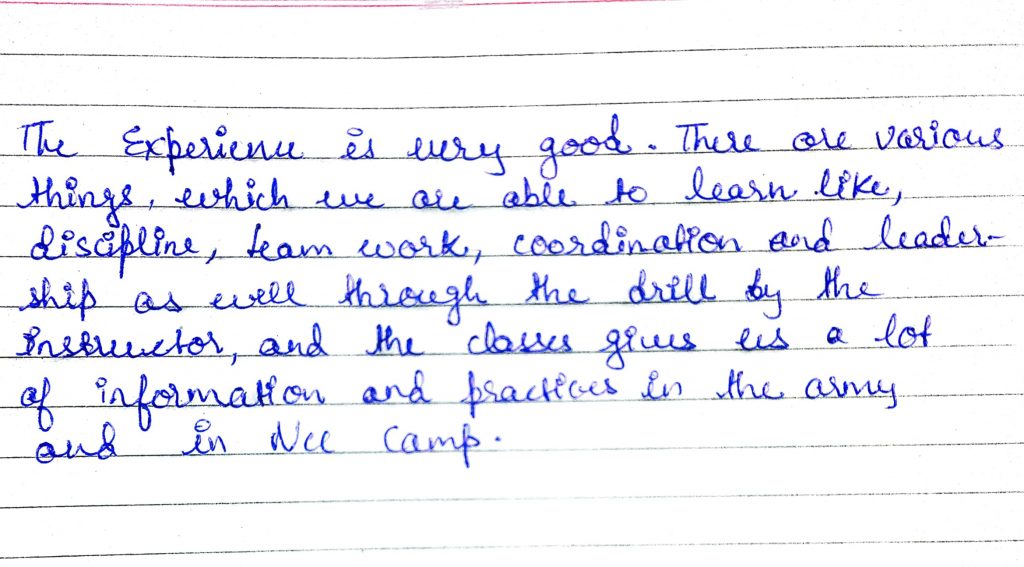 The Experience is very good. There are various
things, which we are able to learn like,
discipline, team work, coordination and leader-
ship as well through the drill by the
instructor, and the classes gives us a lot
of information and practices in the army
and in Ncc Camp.